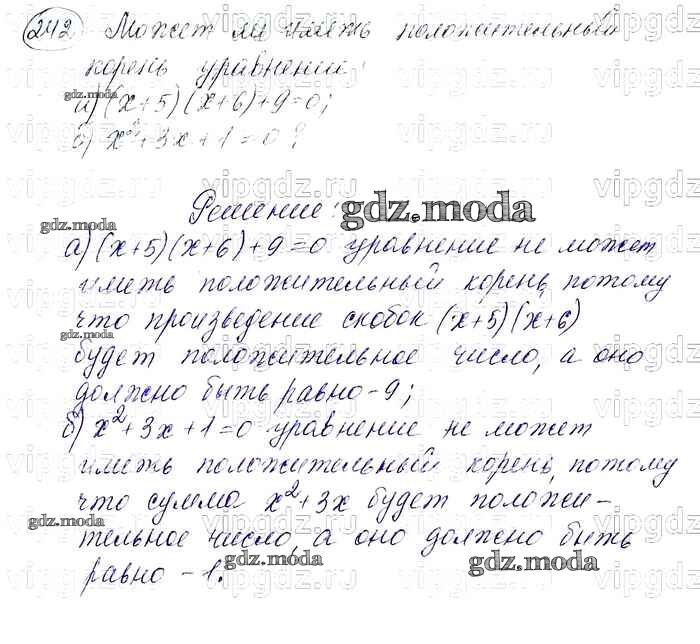 242 Может ли иметь положительный
корень уравнения:
а) (x+5)(x+6)+9=0;
б) x²+3x+1=0?
Решение:
а) (x+5)(x+6)+9=0 уравнение не может
иметь положительный корень, потому
что произведение скобок (x+5)(x+6)
будет положительное число, а оно
должно быть равно -9;
б) x²+3x+1=0 уравнение не может
иметь положительный корень, потому
что сумма x²+3x будет положи-
тельное число, а оно должно быть
равно -1.
gdz.moda
gdz.moda
gdz.moda
gdz.moda
gdz.moda
gdz.moda
gdz.moda
vipgdz.ru